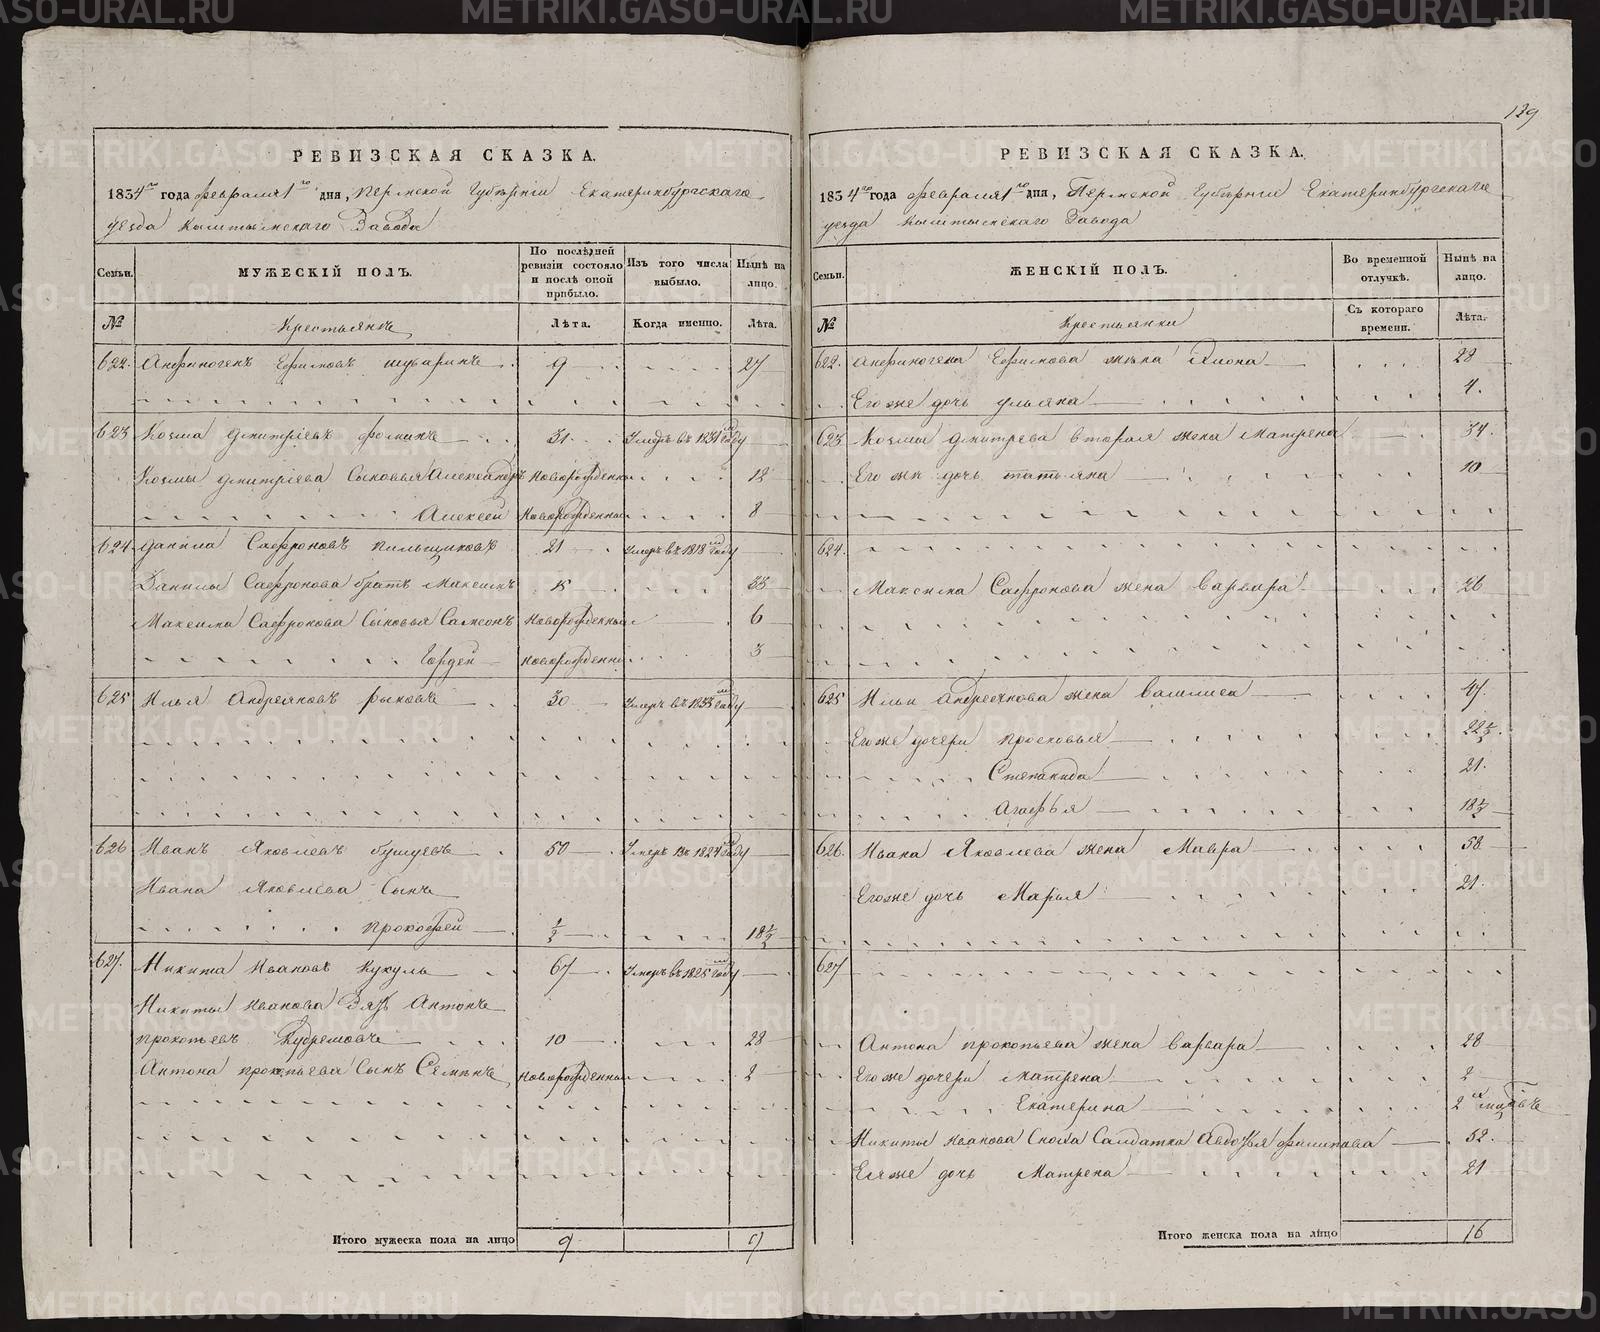 129
РЕВИЗСКАЯ СКАЗКА.
1834го года февраля 1го дня, Пермской Губернiи Екатеринбургскаго
уезда Кыштымскаго Завода
Семьи.
МУЖЕСКIЙ ПОЛЪ.
По послѣдней ревизiи состояло и послѣ оной прибыло.
Изъ того числа выбыло.
Нынѣ на лицо.
№
Крестьянъ
Лѣта.
Когда именно.
Лѣта.
622. Анфиногенъ Ефимовъ 9 27
623 Козма Дмитрiевъ Фоминъ 31 Умеръ въ 1831м году
Козмы Дмитрiева Сыновья Александръ Новорожденны 12
Алексей Новорожденны 8
624. Данила Сафроновъ Пильщиковъ 21 Умеръ въ 1818м году
Данилы Сафронова братъ Максимъ 15 33
Максима Сафронова Сыновья Самсонъ Новорожденны 6
Гордей Новорожденны 3
625 Илья Андреяновъ Рыковъ 30 Умеръ въ 1833м году
626 Иванъ Яковлевъ Бушуевъ 50 Умеръ въ 1824м году
Ивана Яковлева Сынъ
Прокофей 1/2 18 1/2
627. Никита Ивановъ Кукуль 67 Умеръ въ 1825м году
Никиты Иванова Зять Антонъ
Прокопьевъ 10 28
Антона Прокопьева Сынъ Семенъ Новорожденны 2
Итого мужеска пола на лицо 9 9
РЕВИЗСКАЯ СКАЗКА.
1834го года февраля 1го дня, Пермской Губернiи Екатеринбургскаго
уезда Кыштымскаго Завода
Семьи.
ЖЕНСКIЙ ПОЛЪ.
Во временной отлучкѣ.
Нынѣ на лицо.
№
Крестьянки
Съ котораго времени.
Лѣта.
622. Анфиногена Ефимова жена 28
Его же дочь Ульяна 4.
623 Козмы Дмитрева вторая жена Матрена 34.
Его же дочь Татьяна 10
624.
Максима Сафронова жена Варвара 26
625 Ильи Андреянова жена Василиса 47.
Его же дочери Просковья 22 1/2
Степанида 21.
Агафья 18 1/2
626. Ивана Яковлева жена Мавра 58
Его же дочь Марья 21.
627
Антона Прокопьева жена Варвара 28
Его же дочери Матрена 2
Екатерина 2
Никиты Иванова Сноха Салдатка Авдотья Филипова 52.
Ея же дочь Матрена 21
Итого женска пола на лицо 16
METRIKI.GASO-URAL.RU